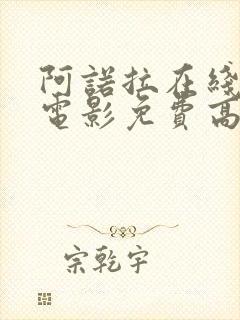 阿諾拉在綫
電影免費高
宗乾宇